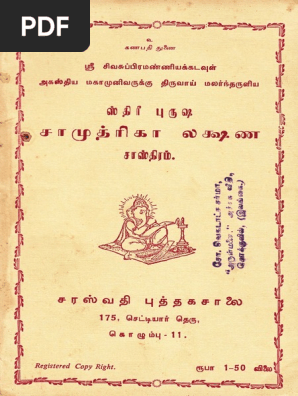 PDF
உ
கணபதி துணை
ஸ்ரீ சிவசுப்பிரமண்ணியக்கடவுள்
அகஸ்திய மகாமுனிவருக்கு திருவாய் மலர்ந்தருளிய
ஸ்திரீ புருஷ
சாமுத்ரிகா லக்ஷண
சாஸ்திரம்.
சரஸ்வதி புத்தகசாலை
175, செட்டியார் தெரு,
கொழும்பு - 11.
Registered Copy Right.
ரூபா 1-50 விலை